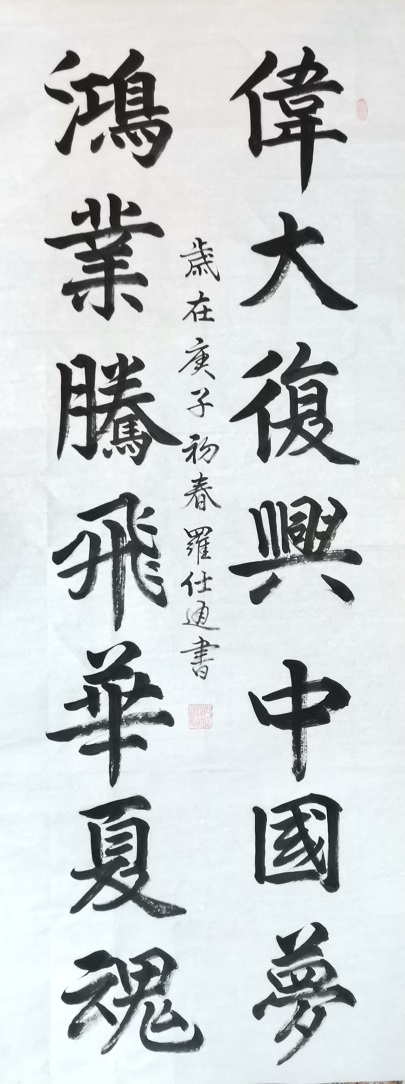 偉大復興中國夢
鴻業騰飛華夏魂
歲在庚子初春羅仕通書